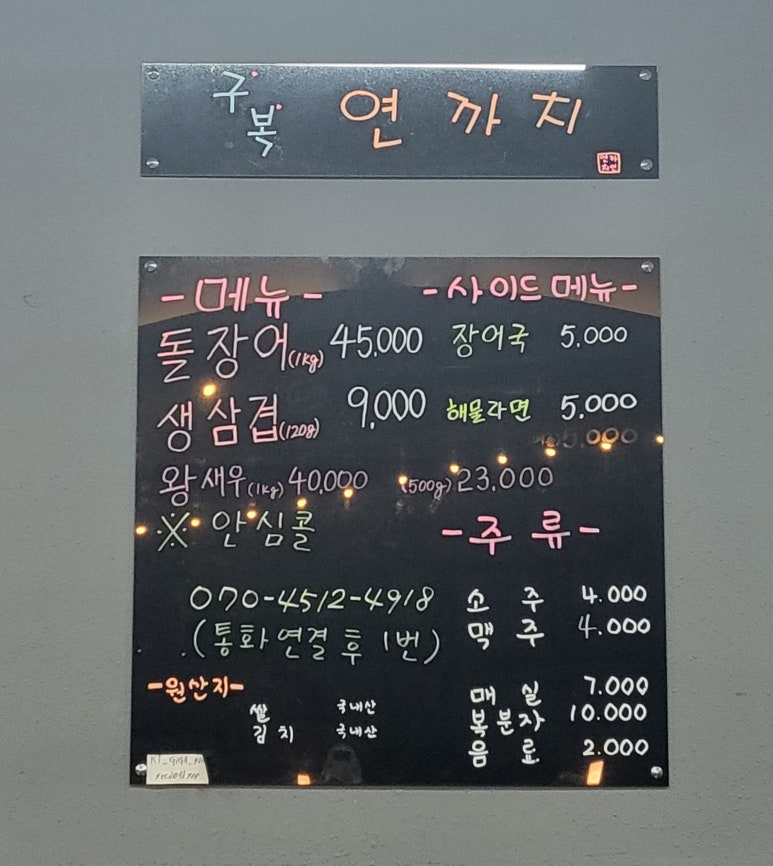 구복 연까치
-메뉴-
돌장어(1kg) 45,000
생삼겹(120g) 9,000
왕새우(1kg) 40,000 (500g) 23,000
※ 안심콜
070-4512-4918
(통화연결 후 1번)
-원산지-
쌀 국내산
김치 국내산
-사이드 메뉴-
장어국 5,000
해물라면 5,000
-주류-
소주 4.000
맥주 4.000
매실 7.000
복분자 10.000
음료 2.000